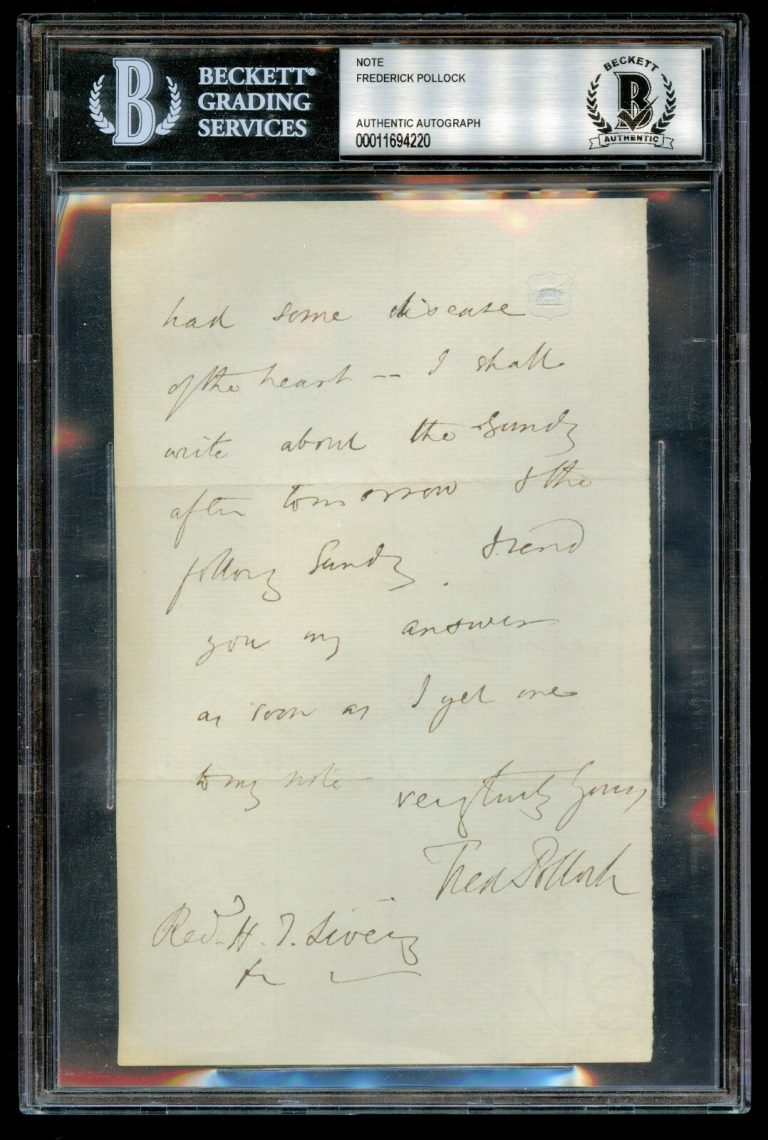 BECKETT®
GRADING
SERVICES
NOTE
FREDERICK POLLOCK
AUTHENTIC AUTOGRAPH
00011694220
BECKETT
B
AUTHENTIC
B
had some disease
of the heart -- I shall
write about the Sundy
after tomorrow & the
follong Sundy. & send
you my answer
as soon as I get one
to my note - very truly yours
Fred Pollock
Revd. H. T.